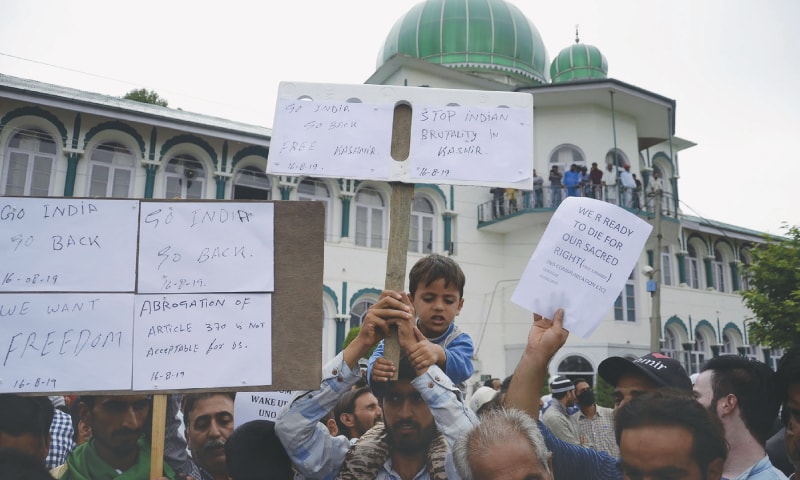 GO INDIA
GO BACK
FREE KASHMIR
16-8-19
STOP INDIAN
BRUTALITY IN
KASHMIR.
16-8-19
GO INDIA
GO BACK
16-08-19
GO INDIA
GO BACK.
16-8-19
WE WANT
FREEDOM
16-8-19
ABROGATION OF
ARTICLE 370 IS NOT
ACCEPTABLE FOR US.
16-8-19
WE R READY
TO DIE FOR
OUR SACRED
RIGHT
WAKE U
UNO